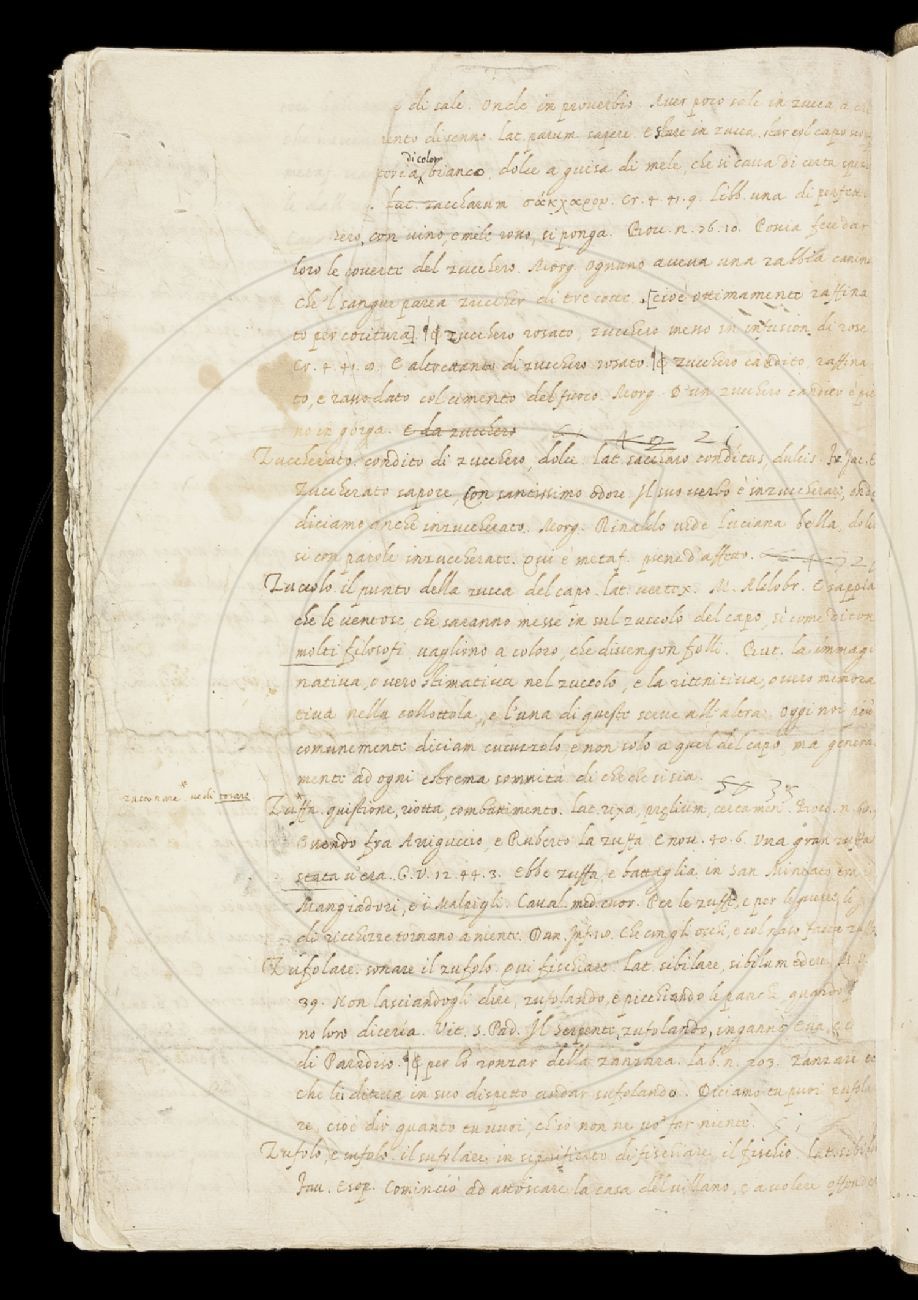 di sale. Onde in proverbio. Aver poco sale in zucca a
mento di senno. lat. parum sapere. E stare in zucca, star col capo
di color
bianco, dolce a guisa di mele, che si cava di certa
Lat. zaccharum σάκχαρον. Cr. 4. 41. 9. Libb. una di
chero, con vino, e mele rono, si ponga. Bocc. n. 76. 10. Covia fece dar
loro le coverte del zucchero. Morg. Ognuno aveva una rabbia canina
Che 'l sangue parea zuccher di tre cotte. [cioè ottimamente raffina
to per cocitura] ¶ zucchero rosato, zucchero messo in infusion di rose
Cr. 4. 41. E altrettanto di zucchero rosato. ¶ zucchero candito, raffina
to, e rassodato col cimento del fuoco. Morg. D'un zucchero candito è pie
no in gorga. E da zucchero
Zuccherato. condito di zucchero, dolce. lat. saccaro conditus, dulcis.
Zuccherato sapore, con santissimo odore. Il suo verbo è inzuccherare, onde
diciamo anche inzuccherato. Morg. Rinaldo vide Luciana bella,
si con parole inzuccherate. Qui è metaf. piene d'affetto.
Zuccolo il punto della zucca del capo. lat. vertex. M. Aldobr. E sappia
che le ventose, che saranno messe in sul zuccolo del capo, sì come dicon
molti filosofi, vagliono a coloro, che divengon folli. But. la immagi
nativa, o vero stimativa nel zuccolo, e la ritenitiva, overo memora
tiva nella collottola, e l'una di queste serve all'altra. Oggi noi più
comunemente diciam cucuzzolo e non solo a quel del capo, ma genera
mente ad ogni estrema sommità di che che si sia.
zucconare * vedi tosare
Zuffa. quistione, riotta, combattimento. lat. rixa, prœlium, certamen. Bocc. n.
Avendo fra Ariguccio, e Ruberto la zuffa. E nov. 40. 6. Una gran zuffa
stata v'era. G. V. 12. 44. 3. Ebbe zuffa, e battaglia in San Miniato tra i
Mangiadori, e i Malpigli. Caval. med. cuor. Per le zuffe, e per le guerre, le
di ricchezze tornano a niente. Dan. Inf. 18. Che con gli occhi, e col naso facea zuffa
Zufolare. sonare il zufolo. Qui fischiare. Lat. sibilare, sibilum edere.
39. Non lasciandogli dire, zufolando, e picchiando le panche, quando
no loro diceria. Vit. S. Pad. Il Serpente, zufolando, ingannò Eva,
di Paradiso. ¶ per lo ronzar della zanzara. Lab. n. 203. Zanzare
che li deteva in suo dispetto andar sufolando. Diciamo tu puoi zufola
re, cioè dir quanto tu vuoi, ch'io non ne vo' far niente.
Zufolo, e sufolo. il sufolare, in significato di fischiare, il fischio. Lat. sibilus
Fav. Esop. Cominciò ad attoscare la casa del villano, e a volere offender